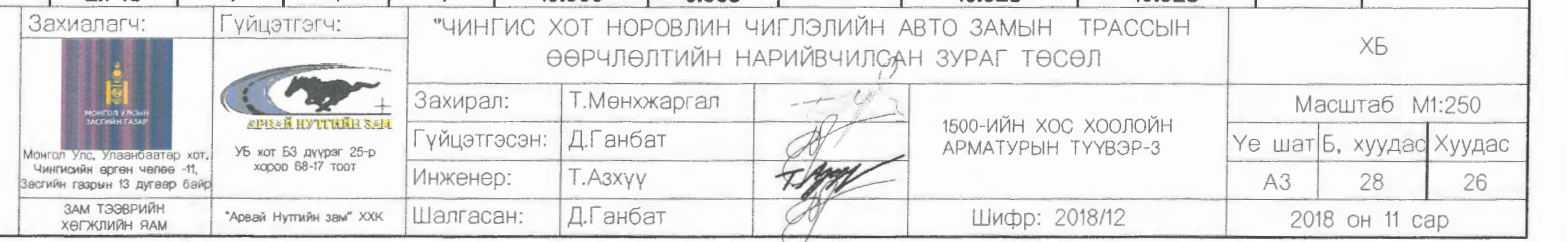 Захиалагч:
МОНГОЛ УЛСЫН
ЗАСГИЙН ГАЗАР
Монгол Улс, Улаанбаатар хот,
Чингисийн өргөн чөлөө -11,
Засгийн газрын 13 дугаар байр
ЗАМ ТЭЭВРИЙН
ХӨГЖЛИЙН ЯАМ
Гүйцэтгэгч:
АРВАЙ НУТГИЙН ЗАМ
УБ хот БЗ дүүрэг 25-р
хороо 68-17 тоот
"Арвай Нутгийн зам" ХХК
"ЧИНГИС ХОТ НОРОВЛИН ЧИГЛЭЛИЙН АВТО ЗАМЫН ТРАССЫН
ӨӨРЧЛӨЛТИЙН НАРИЙВЧИЛСАН ЗУРАГ ТӨСӨЛ
Захирал: Т.Мөнхжаргал
Гүйцэтгэсэн: Д.Ганбат
Инженер: Т.Азхүү
Шалгасан: Д.Ганбат
1500-ИЙН ХОС ХООЛОЙН
АРМАТУРЫН ТҮҮВЭР-3
Шифр: 2018/12
ХБ
Масштаб М1:250
Үе шат Б, хуудас Хуудас
А3 28 26
2018 он 11 сар